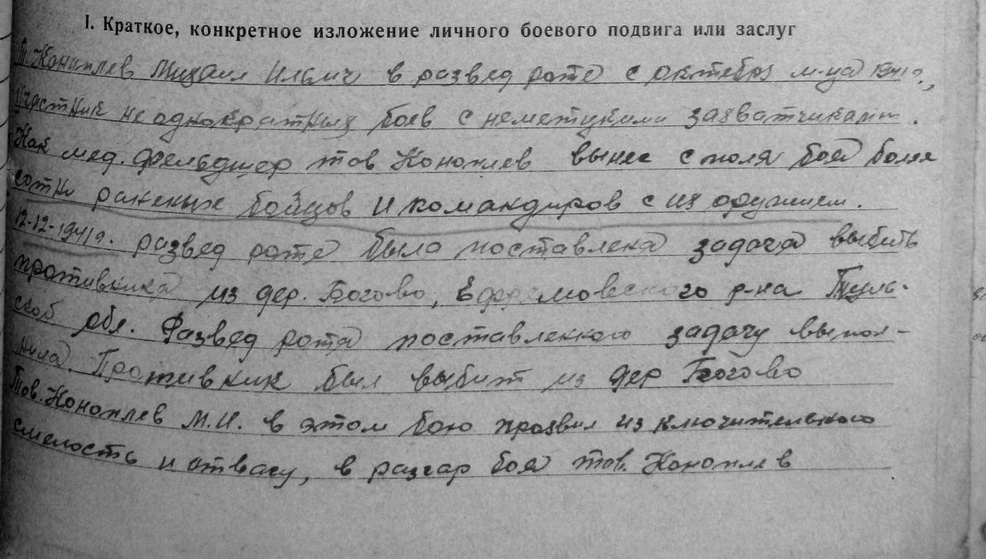 I. Краткое, конкретное изложение личного боевого подвига или заслуг
Т. Коноплев Михаил Ильич в развед роте с октября м-ца 1941 г.,
участник неоднократных боев с немецкими захватчиками.
Как мед. фельдшер тов Коноплев вынес с поля боя более
сотни раненых бойцов и командиров с их оружием.
12-12-1941г. развед роте была поставлена задача выбить
противника из дер. Богово, Ефремовского р-на Туль-
ской обл. Развед рота поставленную задачу выпол-
нила. Противник был выбит из дер Богово
Тов. Коноплев М.И. в этом бою проявил исключительного
смелость и отвагу, в разгар боя тов. Коноплев